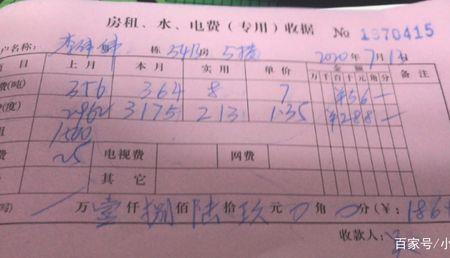 房租、水、电费(专用)收据 No 1870415
户名称: 李 栋 341房 5楼 2020年7月1日
项 目 上 月 本 月 实 用 单 价 金 额 万 千 百 十 元 角 分 备 注
费(吨) 356 364 8 7 ¥56—
(度) 2962 3175 213 1.35 ¥288—
租 1500
费 25 电视费 网费
其 它
万 壹 仟 捌 佰 陆 拾 玖 元 0 角 0 分(¥: 186
收款人:
百家号/小